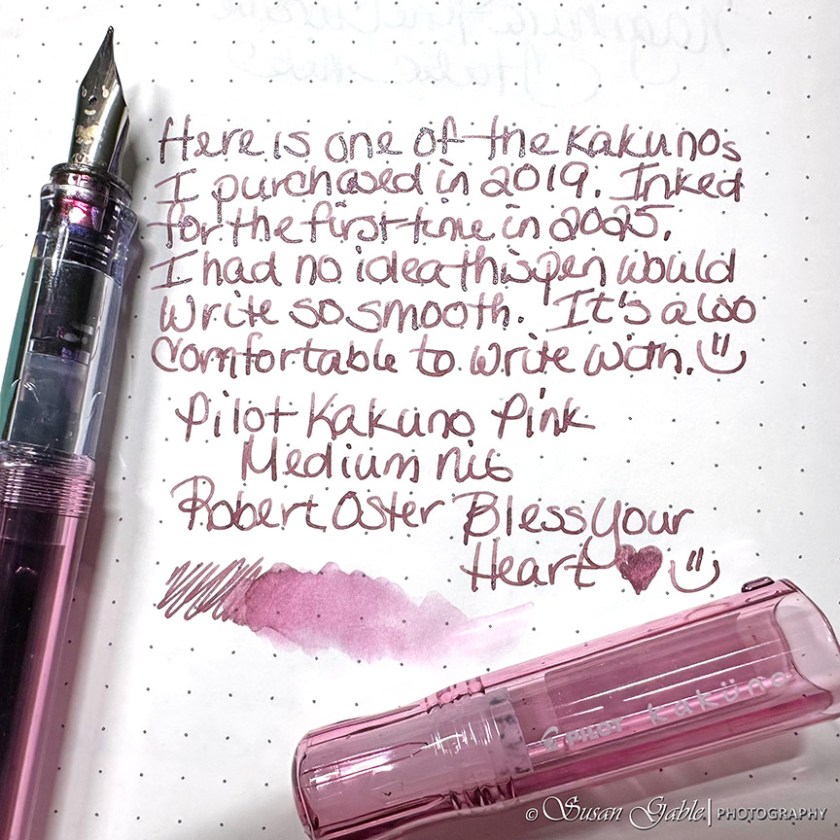 Here is one of the Kakunos
I purchased in 2019. Inked
for the first time in 2025.
I had no idea this pen would
write so smooth. It's also
comfortable to write with.
Pilot Kakuno Pink
Medium nib
Robert Oster Bless Your
Heart
PILOT kaküno
© Susan Gable | PHOTOGRAPHY